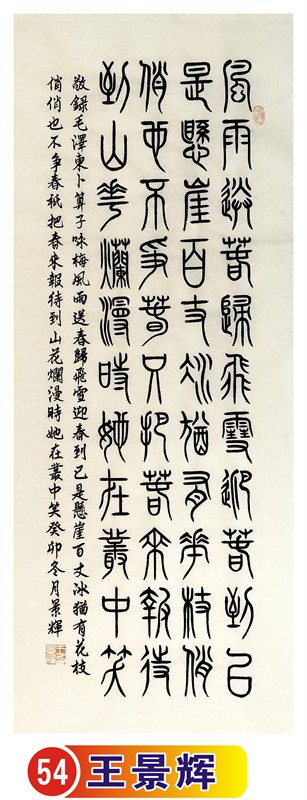 風雨送春歸飛雪迎春到已
是懸崖百丈冰猶有花枝俏
俏也不爭春只把春來報待
到山花爛漫時她在叢中笑
敬録毛澤東卜算子咏梅風雨送春歸飛雪迎春到已是懸崖百丈冰猶有花枝
俏俏也不争春祇把春來報待到山花爛漫時她在叢中笑癸卯冬月景輝
54 王景辉